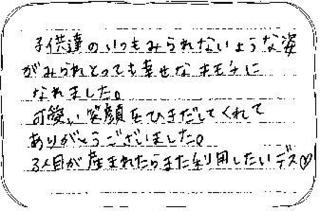 子供達のいつもみられないような姿
がみられとっても幸せなキモチに
なれました。
可愛い笑顔をひきだしてくれて
ありがとうございました。
3人目が産まれたらまた利用したいデス♡